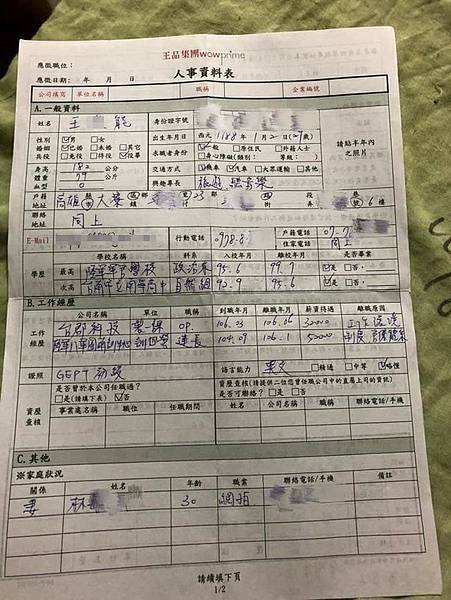 王品集團wowprime
應徵職位:
應徵日期: 年 月 日
人事資料表
公司填寫 單位名稱 職稱 企業編號
A.一般資料
姓名 王 能 身份證字號
性別 ☑男 □女 出生年月日 西元1988年1月2日(29歲)
婚姻 ☑已婚 □未婚 □其它 求職者身份 ☑一般 □原住民 □外籍人士
兵役 □免役 □待役 ☑役畢 □身心障礙(類別: 等級: )
請貼本年內之照片
身高 182 公分 交通方式 ☑機車 ☑汽車 □大眾運輸 □其他
體重 77 公斤
血型 O 興趣專長 旅遊 聽音樂
戶籍地 高雄 大寮 23 6樓
聯絡地址 同上
戶籍電話 07-7
住家電話 同上
E-Mail 行動電話 0978-8
學校名稱 科系 入校年月 離校年月 是否畢業
學歷 最高 陸軍軍官學校 政治系 95.6 99.7 ☑是 □否
次高 自然組 92.9 95.6 ☑是 □否
B.工作經歷
公司名稱 職位 到職年月 離職年月 薪資待遇 離職原因
工作經歷 台郡科技 OP. 106.03 106.06 32000 工作環境
連長 104.09 106.1 52000 制度
證照 GEPT 初級 語言能力 英文 □精通 □中等 ☑略懂
是否曾於本公司任職過? □是(請填下表) ☑否
資歷查核(請提供二位您曾任職公司中的直屬上司的資訊)
是否可聯絡? □是 □否
資歷查核 事業處名稱 職位 任職期間 公司名稱 姓名 職稱 聯絡電話/手機
C.其他
※家庭狀況
關係 姓名 年齡 職業 聯絡電話/手機 備註
妻 林 30 網拍
請續填下頁
1/2